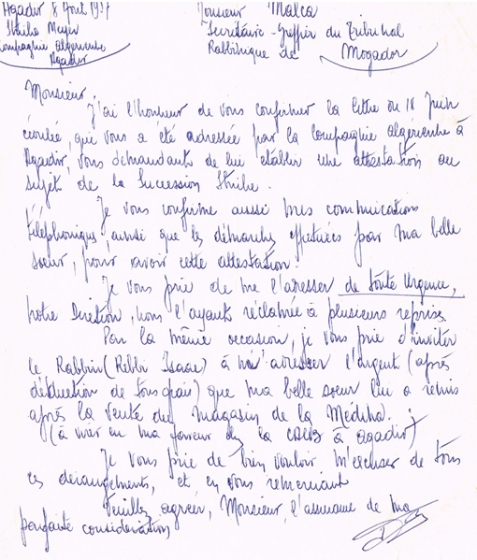 Agadir 8 Aout 1957
Monsieur Malca
Secrétaire-Greffier du Tribunal
Rabbinique de
Mogador
Meyer
Compagnie Algérienne
Agadir
Monsieur,
J'ai l'honneur de vous confirmer la lettre du 18 Juin
écoulée, que vous a été adressée par la Compagnie Algérienne à
Agadir, vous demandants de lui établir une attestation au
sujet de la Succession
Je vous confirme aussi mes communications
téléphoniques, ainsi que les démarches effectuées par ma belle
soeur, pour avoir cette attestation.
Je vous prie de me l'adresser de toute Urgence,
notre Direction, nous l'ayants réclamée à plusieurs reprises
Par la même occasion, je vous prie d'inviter
le Rabbin (Rebbi Isaac) à m'adresser l'argent (après
déduction de tous frais) que ma belle soeur lui a remis
après la vente des magasins de la Médina.
(à virer en ma faveur à Agadir)
Je vous prie de bien vouloir m'excuser de tous
ces dérangements, et en vous remerciant
Veuillez agréer, Monsieur, l'assurance de ma
parfaite considération